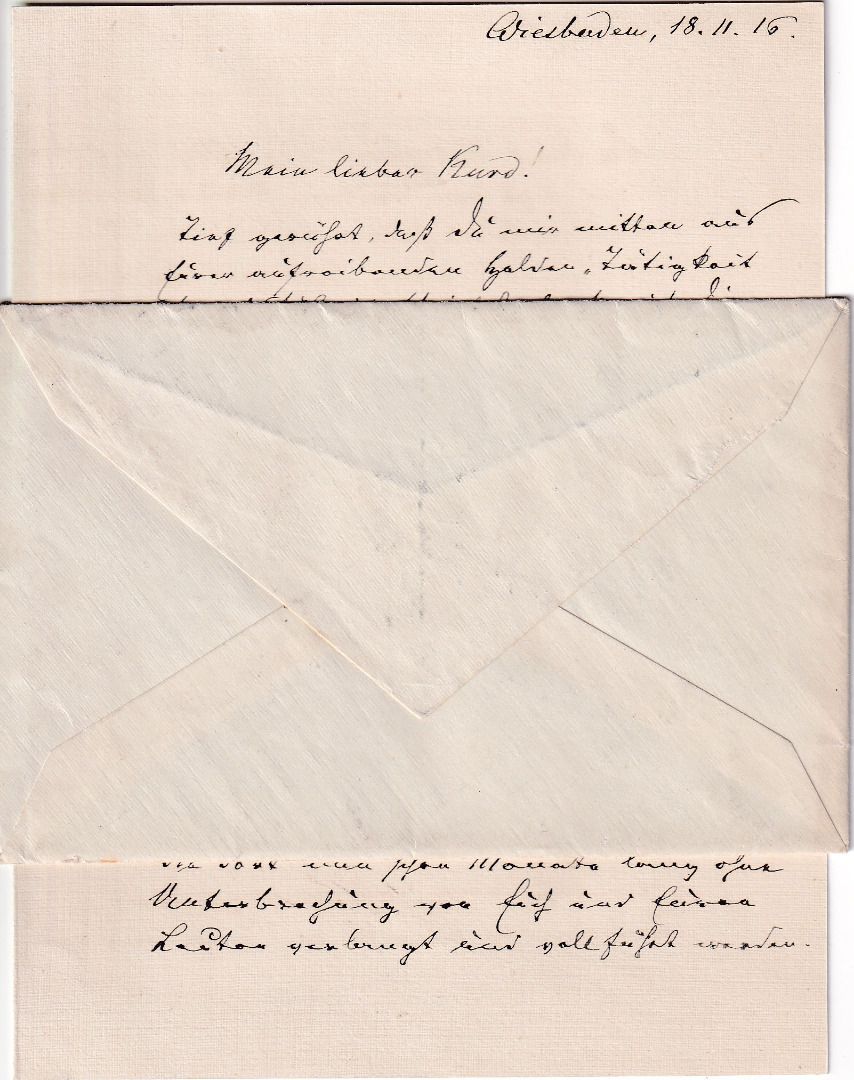 Wiesbaden, 18. 11. 16.
Mein lieber Kurd!
Tief gerührt, daß Du mir mitten aus
Eurer aufreibenden Helden-Tätigkeit
die dort nun schon Monate lang ohne
Unterbrechung von Euch und Euren
Leuten verlangt und vollführt werden.